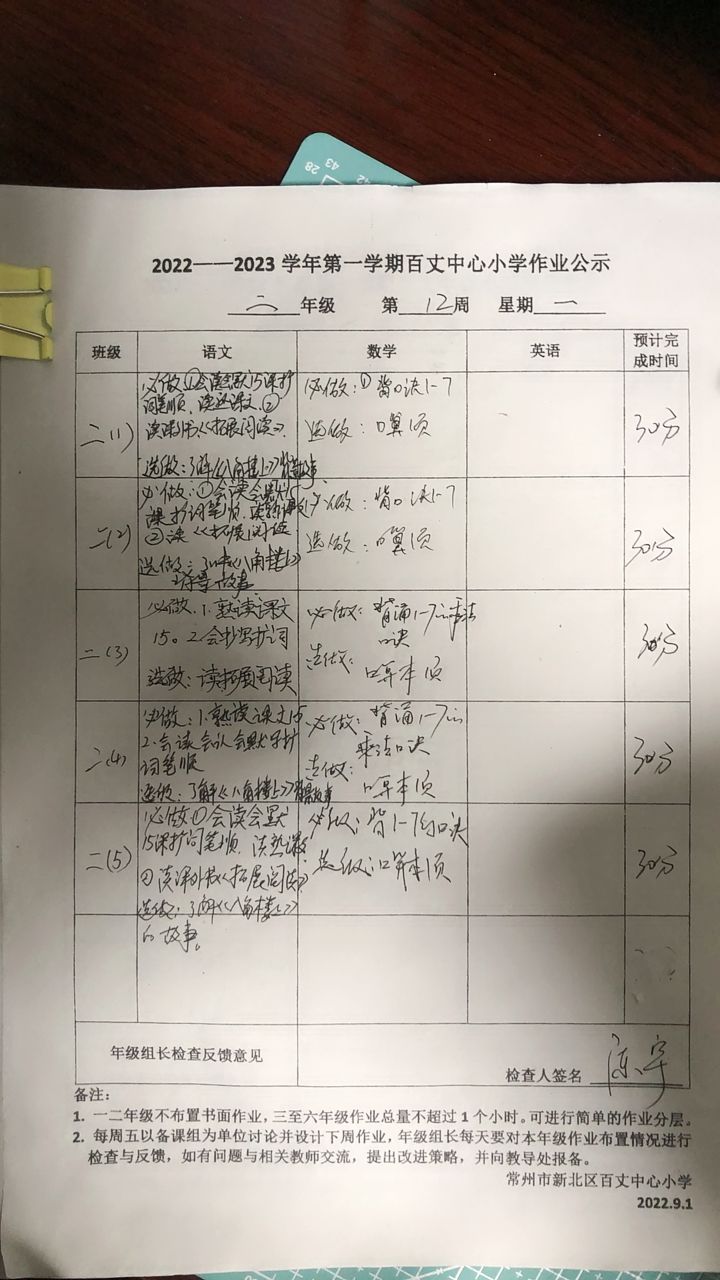 28
43
42
2022——2023 学年第一学期百丈中心小学作业公示
二 年级 第 12 周 星期 一
班级 语文 数学 英语 预计完成时间
二(1)
必做①会读会默15课扩
词笔顺、读熟课文.②
读课外书《拓展阅读》.
选做:了解《八角楼上》背景故事
必做:①背口决1-7
选做:口算1页
30分
二(2)
必做:①会读会默15
课扩词笔顺.读熟课文
②读《拓展阅读
选做:了解《八角楼上》
故事
必做:背口决1-7
选做:口算1页
30分
二(3)
必做.1.熟读课文
15。2.会抄写扩词
选做:读拓展阅读
必做:背诵1-7的乘法
口决
选做:
口算本1页
30分
二(4)
必做:1.熟读课文15
2.会读会认会默写扩
词笔顺
选做:了解《八角楼上》背景故事
必做:背诵1-7的
乘法口决
选做:
口算本1页
30分
二(5)
必做①会读会默
15课扩词笔顺.读熟课文
②读课外书《拓展阅读》
选做:了解《八角楼上》
的故事。
必做:背1-7的口决
选做:口算本1页
30分
年级组长检查反馈意见
检查人签名 陈宇
备注:
1. 一二年级不布置书面作业,三至六年级作业总量不超过 1 个小时。可进行简单的作业分层。
2. 每周五以备课组为单位讨论并设计下周作业,年级组长每天要对本年级作业布置情况进行
检查与反馈,如有问题与相关教师交流,提出改进策略,并向教导处报备。
常州市新北区百丈中心小学
2022.9.1